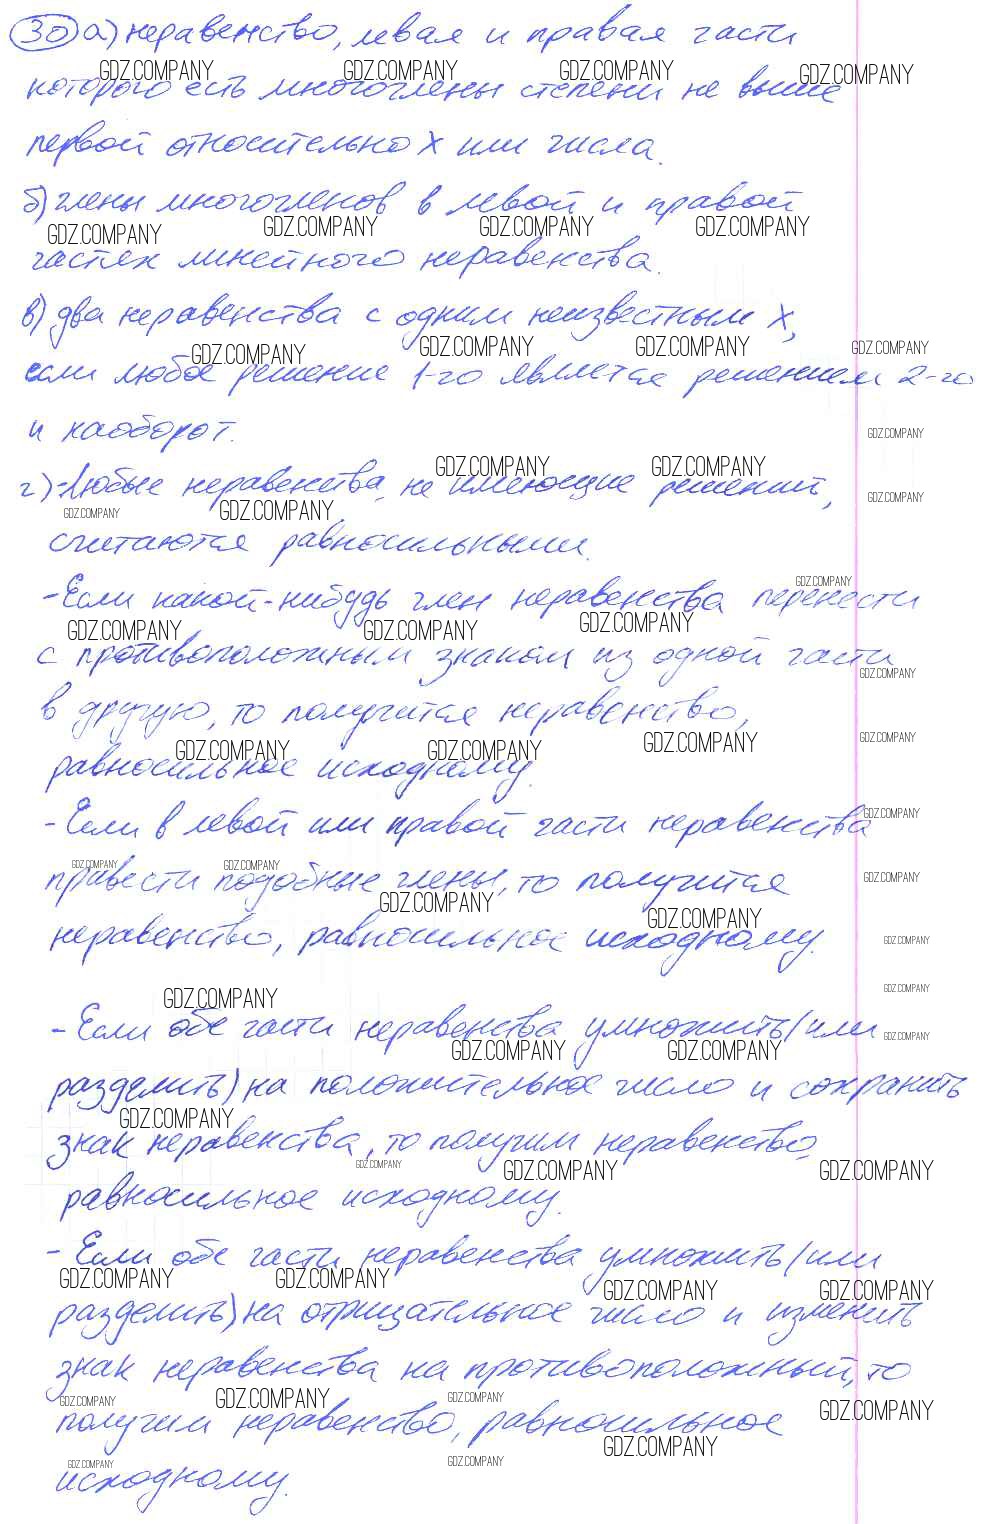 30 а) неравенство, левая и правая части
которого есть многочлены степени не выше
первой относительно x или числа.
б) члены многочленов в левой и правой
частях линейного неравенства.
в) два неравенства с одним неизвестным x,
если любое решение 1-го является решением 2-го
и наоборот.
г) - Любые неравенства, не имеющие решений,
считаются равносильными.
- Если какой-нибудь член неравенства перенести
с противоположным знаком из одной части
в другую, то получится неравенство,
равносильное исходному.
- Если в левой или правой части неравенства
привести подобные члены, то получится
неравенство, равносильное исходному.
- Если обе части неравенства умножить (или
разделить) на положительное число и сохранить
знак неравенства, то получим неравенство,
равносильное исходному.
- Если обе части неравенства умножить (или
разделить) на отрицательное число и изменить
знак неравенства на противоположный, то
получим неравенство, равносильное
исходному.
GDZ.COMPANY